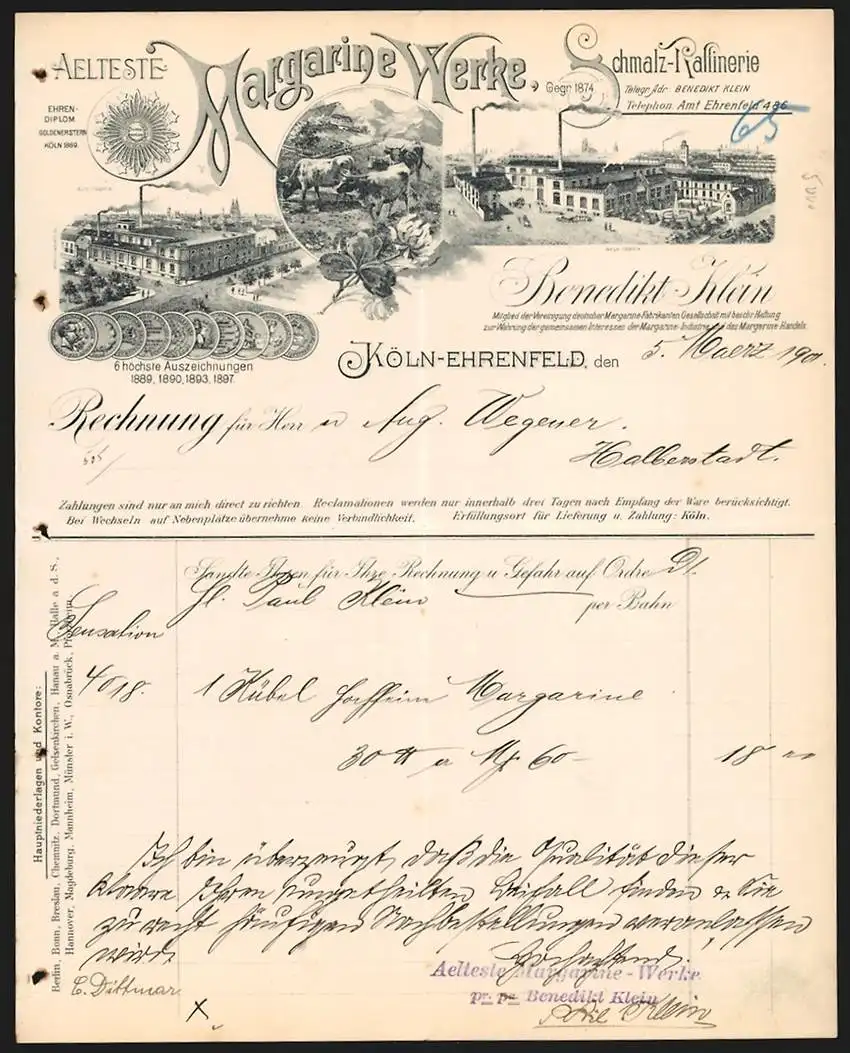 AELTESTE Margarine Werke, Schmalz-Raffinerie
Gegr. 1874.
Telegr. Adr. BENEDIKT KLEIN
Telephon. Amt Ehrenfeld 486
65
EHREN-
DIPLOM
GOLDENER STERN
KÖLN 1889.
Benedikt Klein
Mitglied der Vereinigung deutscher Margarine-Fabrikanten, Gesellschaft mit beschr. Haftung
zur Wahrung der gemeinsamen Interessen der Margarine-Industrie und des Margarine-Handels.
6 höchste Auszeichnungen
1889, 1890, 1893, 1897.
KÖLN-EHRENFELD, den 5. Maerz 1901.
Rechnung für Herr n Aug. Wegener.
Halberstadt.
Zahlungen sind nur an mich direct zu richten. Reclamationen werden nur innerhalb drei Tagen nach Empfang der Ware berücksichtigt.
Bei Wechseln auf Nebenplätze übernehme keine Verbindlichkeit. Erfüllungsort für Lieferung u. Zahlung: Köln.
Sandte Ihnen für Ihre Rechnung u. Gefahr auf Ordre
Paul Klein
per Bahn
Sensation
4018. 1 Kübel hochfeine Margarine
30 ℔ a Mk 60 18
Ich bin überzeugt, daß die Qualität dieser
Waare Ihren ungetheilten Beifall finden & Sie
zu recht häufigen Nachbestellungen veranlassen
wird.
Hochachtend!
Aelteste Margarine-Werke
pr. pa Benedikt Klein
Klein
E. Dittmar
X
Hauptniederlagen und Kontore:
Berlin, Bonn, Breslau, Chemnitz, Dortmund, Gelsenkirchen, Hanau a. M., Halle a. d. S.,
Hannover, Magdeburg, Mannheim, Münster i. W., Osnabrück, Pforzheim.